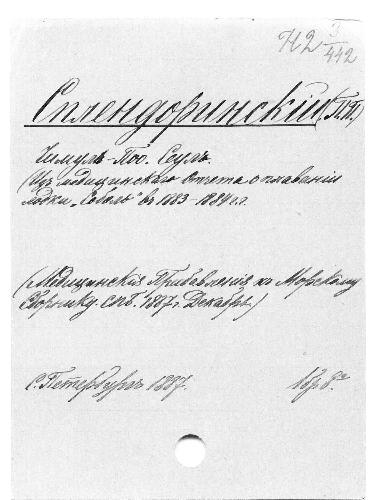 Н2 3/442
Сплендоринскій (П.П.)
Чимуль-По. Сеулъ.
(Изъ медицинскаго отчета о плаваніи
лодки „Соболь" въ 1883-1884 г.г.
(Медицинскія Прибавленія къ Морскому
Сборнику. Спб. 1887 г. Декабрь)
С. Петербургъ 1887.
1 бр. 8°